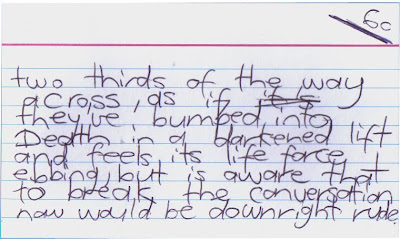 6c
two thirds of the way
across, as if
they've bumped into
Death in a darkened lift
and feels its life force
ebbing but is aware that
to break the conversation
now would be downright rude.